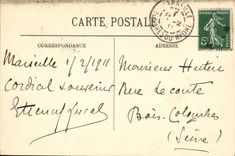 CARTE POSTALE
CORRESPONDANCE
ADRESSE
Marseille 1/2/1911
Cordial souvenir
Monsieur Hutin
Rue de
Bois-Colombes
(Seine)